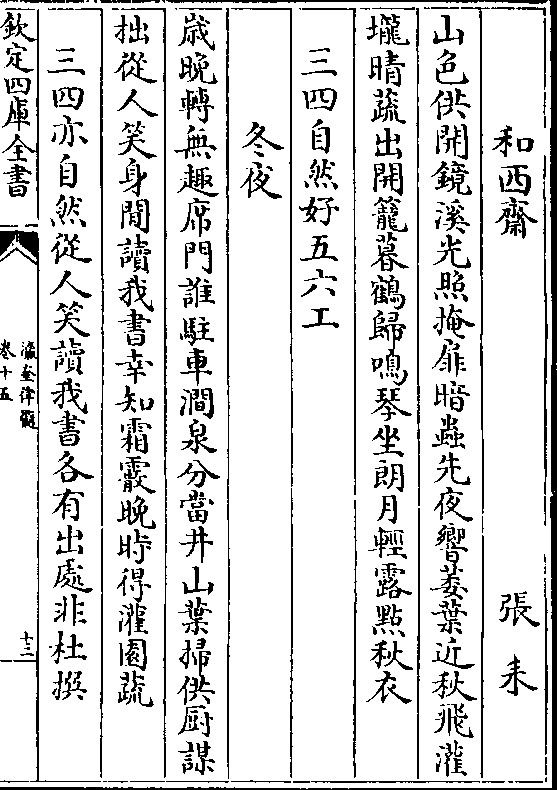 和西齋　張耒
山色供開鏡溪光照掩扉暗蟲先夜響萎葉近秋飛灌
壠晴蔬出開籠暮鶴歸鳴琴坐朗月輕露點秋衣
三四自然好五六工
冬夜
歲晚轉無趣席門誰駐車澗泉分當井山葉掃供厨謀
拙從人笑身閒讀我書幸知霜霰晚時得灌園蔬
三四亦自然從人笑讀我書各有出處非杜撰
欽定四庫全書
瀛奎律髓
卷十五
十三